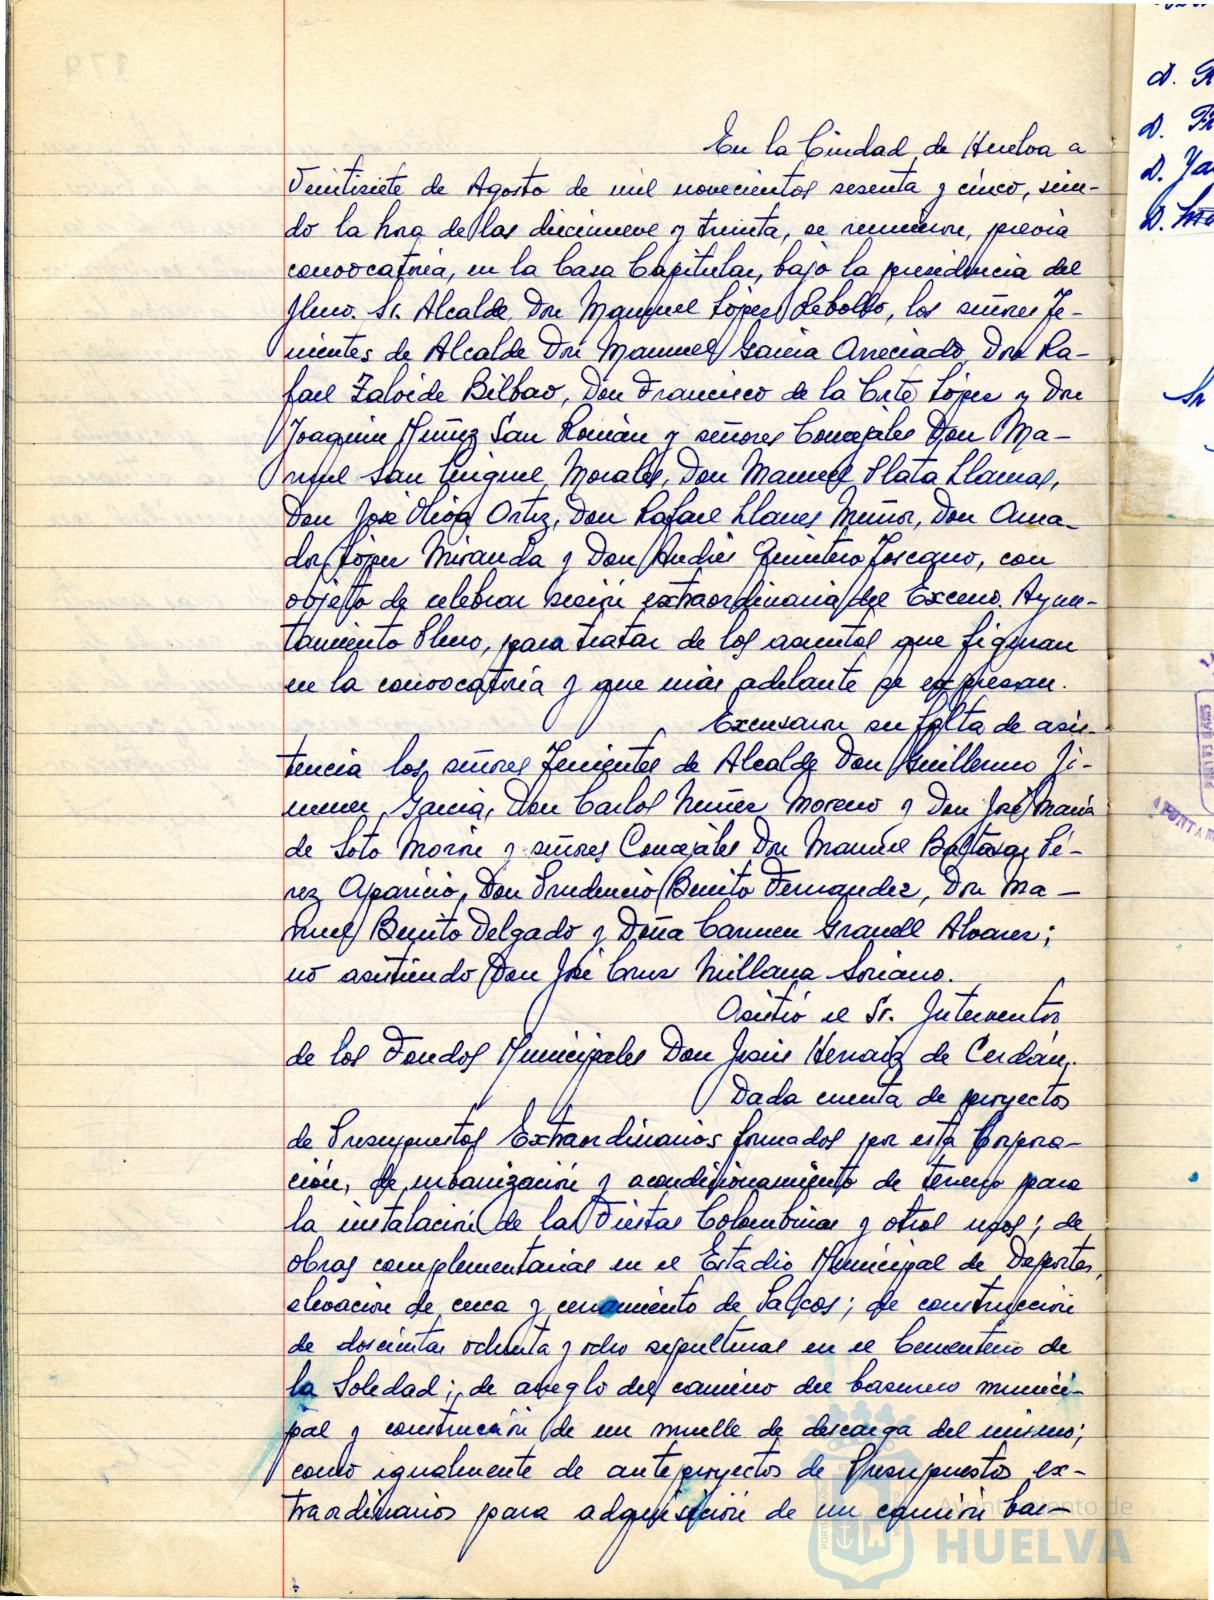 En la Ciudad de Huelva a
veintisiete de Agosto de mil novecientos sesenta y cinco, sien-
do la hora de las diecinueve y treinta, se reunieron, previa
convocatoria, en la Casa Capitular, bajo la presidencia del
Iltmo. Sr. Alcalde Don Manuel López Rebollo, los señores Te-
nientes de Alcalde Don Manuel García Arreciado, Don Ra-
fael Zalvide Bilbao, Don Francisco de la Corte López y Don
Joaquin Muñiz San Román y señores Concejales Don Ma-
nuel San Miguel Morales, Don Manuel Plata Llamas,
Don José Oliva Ortiz, Don Rafael Llanes Muñoz, Don Ama-
dor López Miranda y Don Andrés Quintero Toscano, con
objeto de celebrar sesión extraordinaria del Excmo. Ayun-
tamiento Pleno, para tratar de los asuntos que figuran
en la convocatoria y que más adelante se expresan.
Excusaron su falta de asis-
tencia los señores Tenientes de Alcalde Don Guillermo Ji-
menez García, Don Carlos Nuñez Moreno y Don José María
de Soto Morón y señores Concejales Don Manuel Baltasar Pé-
rez Aparicio, Don Prudencio Benito Fernandez, Don Ma-
nuel Benito Delgado y Doña Carmen Grandll Alvarez;
no asistiendo Don José Cruz Millana Soriano.
Asistió el Sr. Interventor
de los Fondos Municipales Don Jesús Hernaiz de Cerdán.
Dada cuenta de proyectos
de Presupuestos Extraordinarios formados por esta Corpora-
ción, de urbanización y acondicionamiento de terreno para
la instalación de las Fiestas Colombinas y otros usos; de
obras complementarias en el Estadio Municipal de Deportes,
elevación de cerca y cerramiento de Palcos; de construcción
de doscientas ochenta y ocho sepulturas en el Cementerio de
la Soledad; de arreglo del camino del basurero munici-
pal y construcción de un muelle de descarga del mismo;
como igualmente de anteproyectos de Presupuestos ex-
traordinarios para adquisición de un camión bas-
Ayuntamiento de
HUELVA